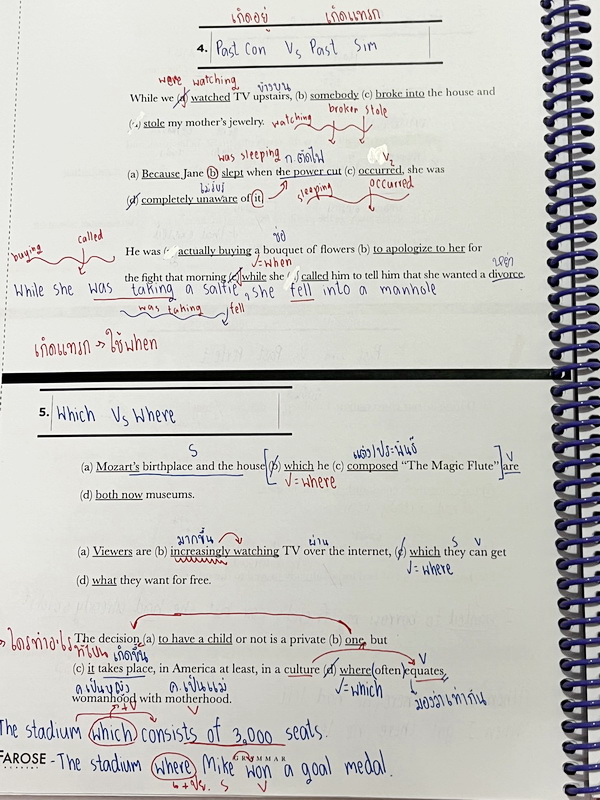 เกิดอยู่ เกิดแทรก
4. Past Con Vs Past Sim
were watching ข้างบน
While we (a) watched TV upstairs, (b) somebody (c) broke into the house and
watching broken stole
stole my mother's jewelry.
was sleeping ก.ตัดไฟ V2
(a) Because Jane (b) slept when the power cut (c) occurred, she was
ไม่รู้เรื่อง sleeping occurred
(d) completely unaware of it.
buying called ช่อ
He was actually buying a bouquet of flowers (b) to apologize to her for
√=when หย่า
the fight that morning (c) while she called him to tell him that she wanted a divorce.
While she was taking a salfie, she fell into a manhole
was taking fell
เกิดแทรก → ใช้when
5. Which Vs Where
S แต่ง/ประพันธ์ V
(a) Mozart's birthplace and the house (b) which he (c) composed "The Magic Flute" are
√=where
(d) both now museums.
มากขึ้น ผ่าน S V
(a) Viewers are (b) increasingly watching TV over the internet, (c) which they can get
√=where
(d) what they want for free.
ใครทำอะไรที่ไหน
The decision (a) to have a child or not is a private (b) one, but
เกิดขึ้น V
(c) it takes place, in America at least, in a culture (d) where (often) equates
ค.เป็นผู้หญิง ค.เป็นแม่ √=which มองว่าเท่ากัน
womanhood with motherhood.
+V
The stadium which consists of 3,000 seats.
FAROSE GRAMMAR
- The stadium where Mike won a goal medal.
S V